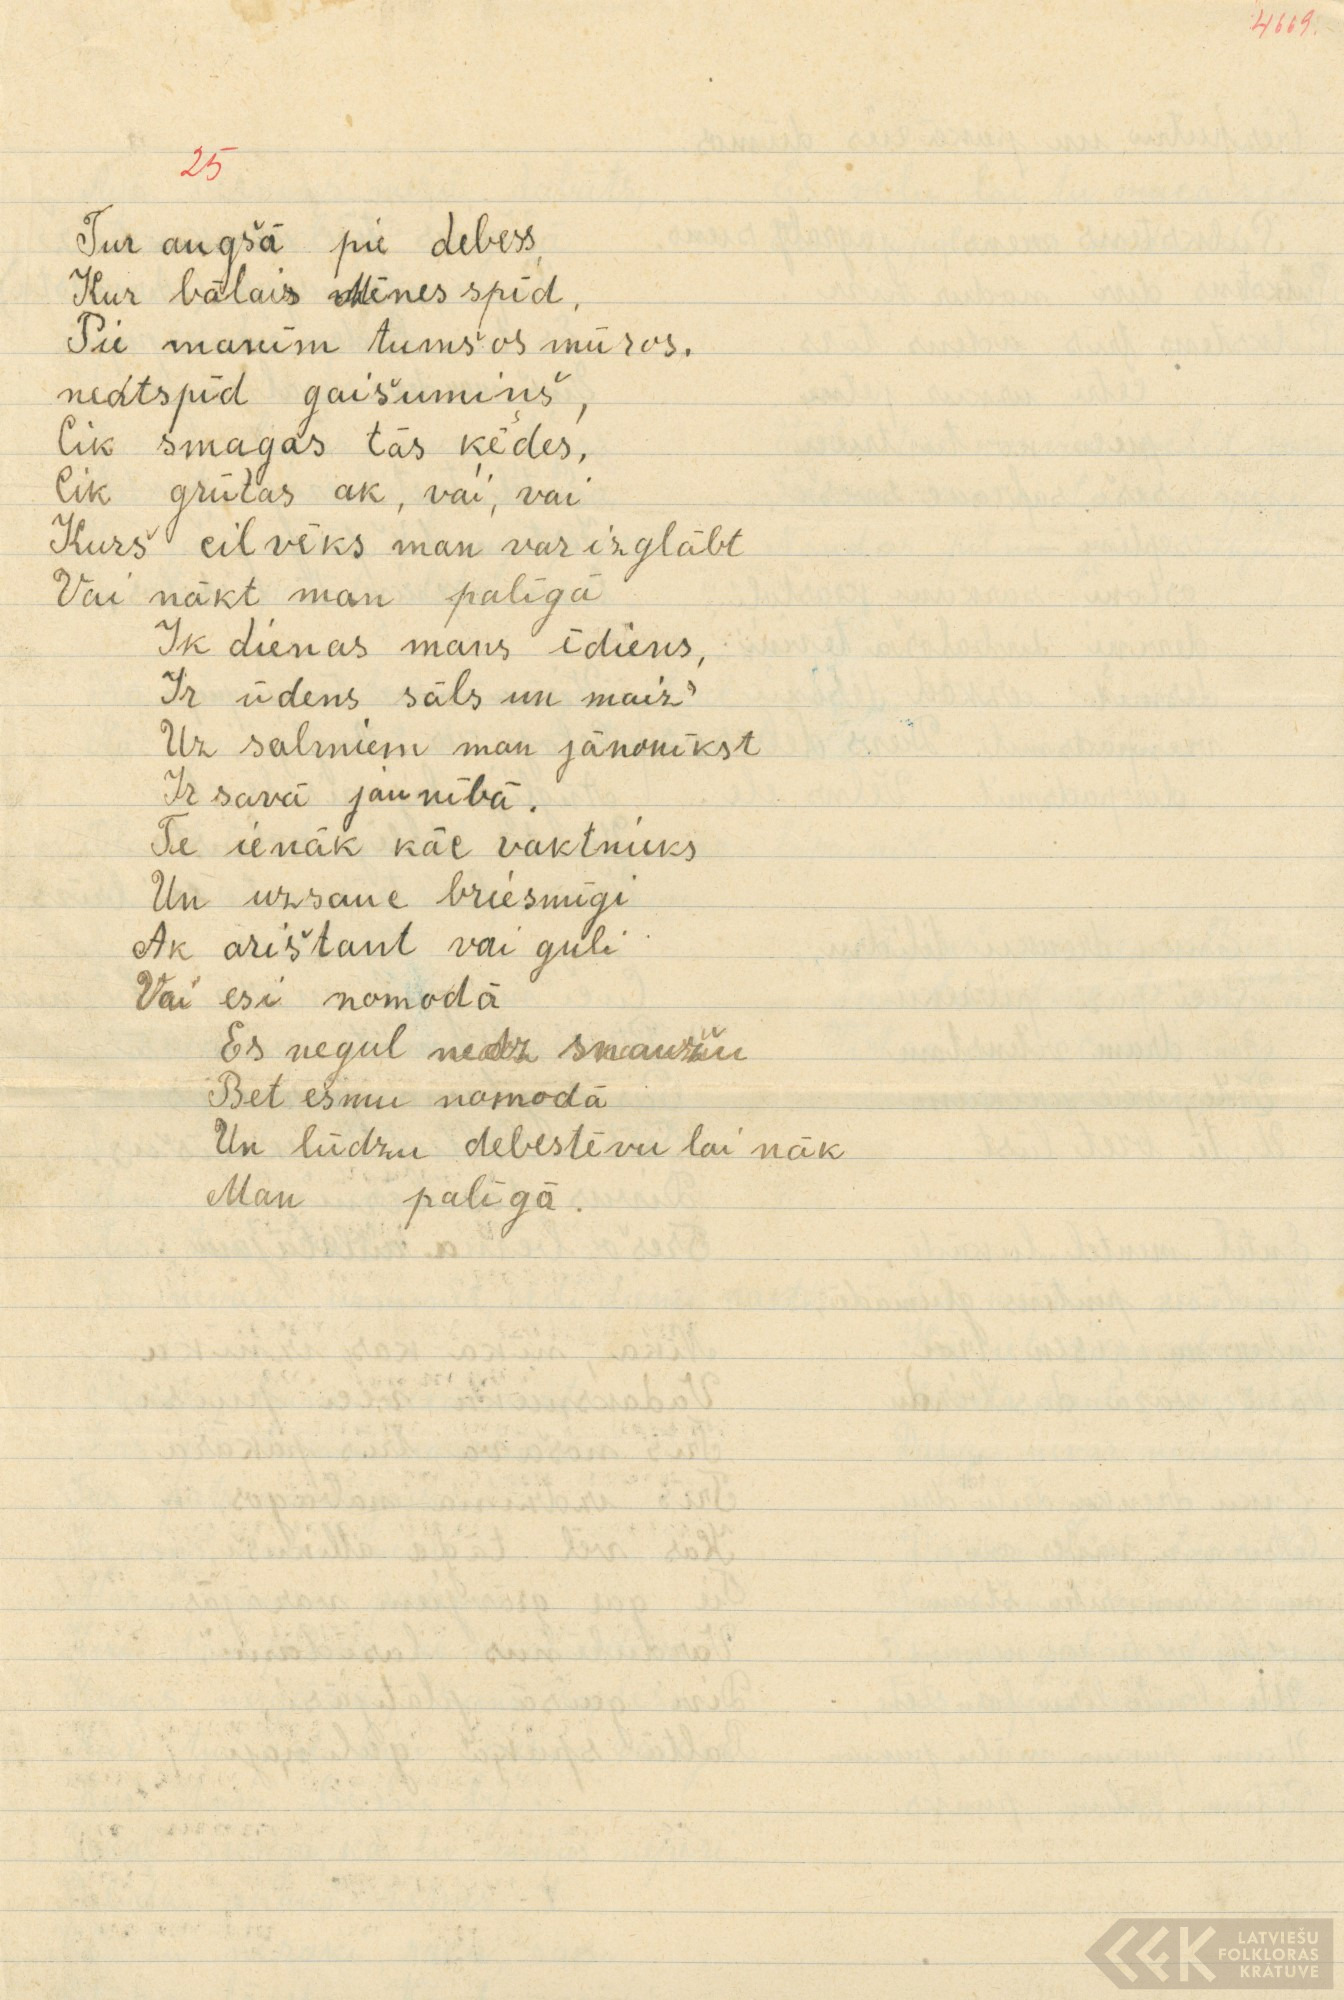 4669.
25
Tur augšā pie debess,
Kur bālais Mēnes spīd,
Pie manīm tumšos mūros.
neatspīd gaišumiņš,
Cik smagas tās ķēdes,
Cik grūtas ak, vai, vai
Kurš cilvēks man var izglābt
Vai nākt man palīgā
Ik dienas mans ēdiens,
Ir ūdens sāls un maiz'
Uz salmiem man jānonīkst
Ir savā jaunībā.
Te ienāk kāc vaktnieks
Un uzsauc briesmīgi
Ak arištant vai guli
Vai esi nomodā
Es negul nedz snaužu
Bet esmu nomodā
Un lūdzu debestēvu lai nāk
Man palīgā.
LATVIEŠU
FOLKLORAS
KRĀTUVE